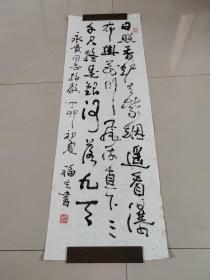 日照香炉生紫烟遥看瀑
布掛前川飛流直下三
千尺疑是銀河落九天
永贵同志指教 丁卯初夏 福生書